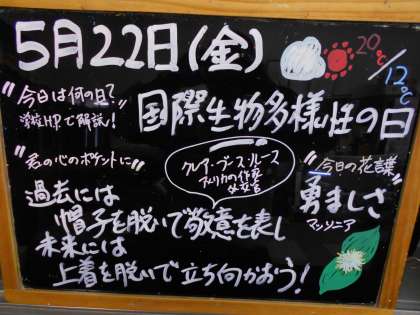 5月22日(金)
20℃/12℃
"今日は何の日?
学校HPで解説!"
国際生物多様性の日
"君の心のポケットに"
クレア・ブース・ルース
アメリカの作家
外交官
"今日の花言葉"
勇ましさ
マッソニア
過去には
帽子を脱いで敬意を表し
未来には
上着を脱いで立ち向かおう!